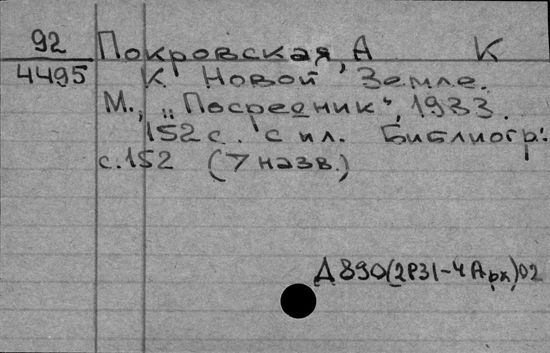 92 Покровская, А К
4495 К Новой Земле.
М., „Посредник“, 1933.
152 с. с ил. Библиогр.:
с. 152 (7 назв.)
Д890(2Р31-4Арх)02